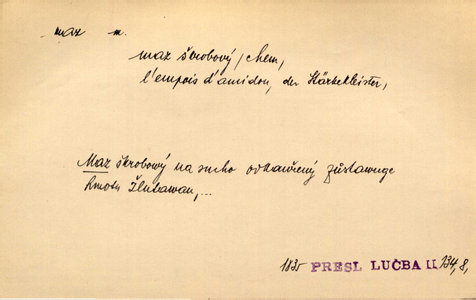 maz m.
maz škrobový /chem,
l'empois d'amidon, der Stärkekleister,
Maz škrobowý na sucho odkauřený zůstawuge
hmotu
1835 PRESL LUČBA II 134,8,